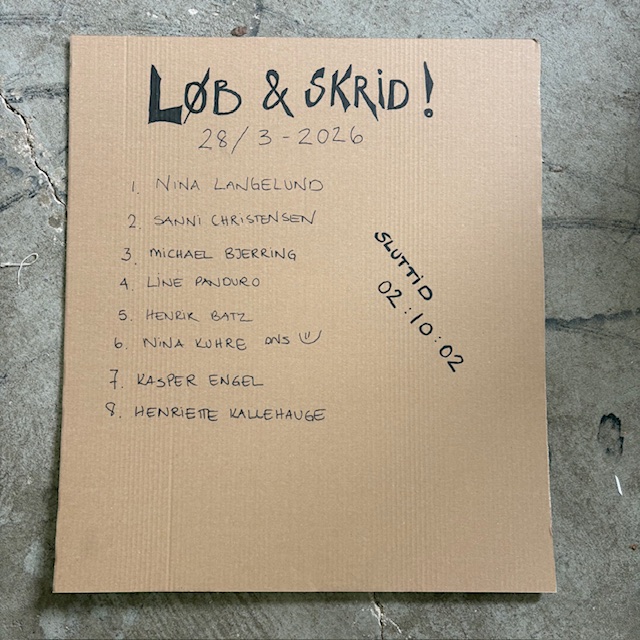 LØB & SKRID!
28/3-2026
1. NINA LANGELUND
2. SANNI CHRISTENSEN
3. MICHAEL BJERRING
4. LINE PANDURO
5. HENRIK BATZ
6. NINA KUHRE ONS
7. KASPER ENGEL
8. HENRIETTE KALLEHAUGE
SLUTTID
02:10:02